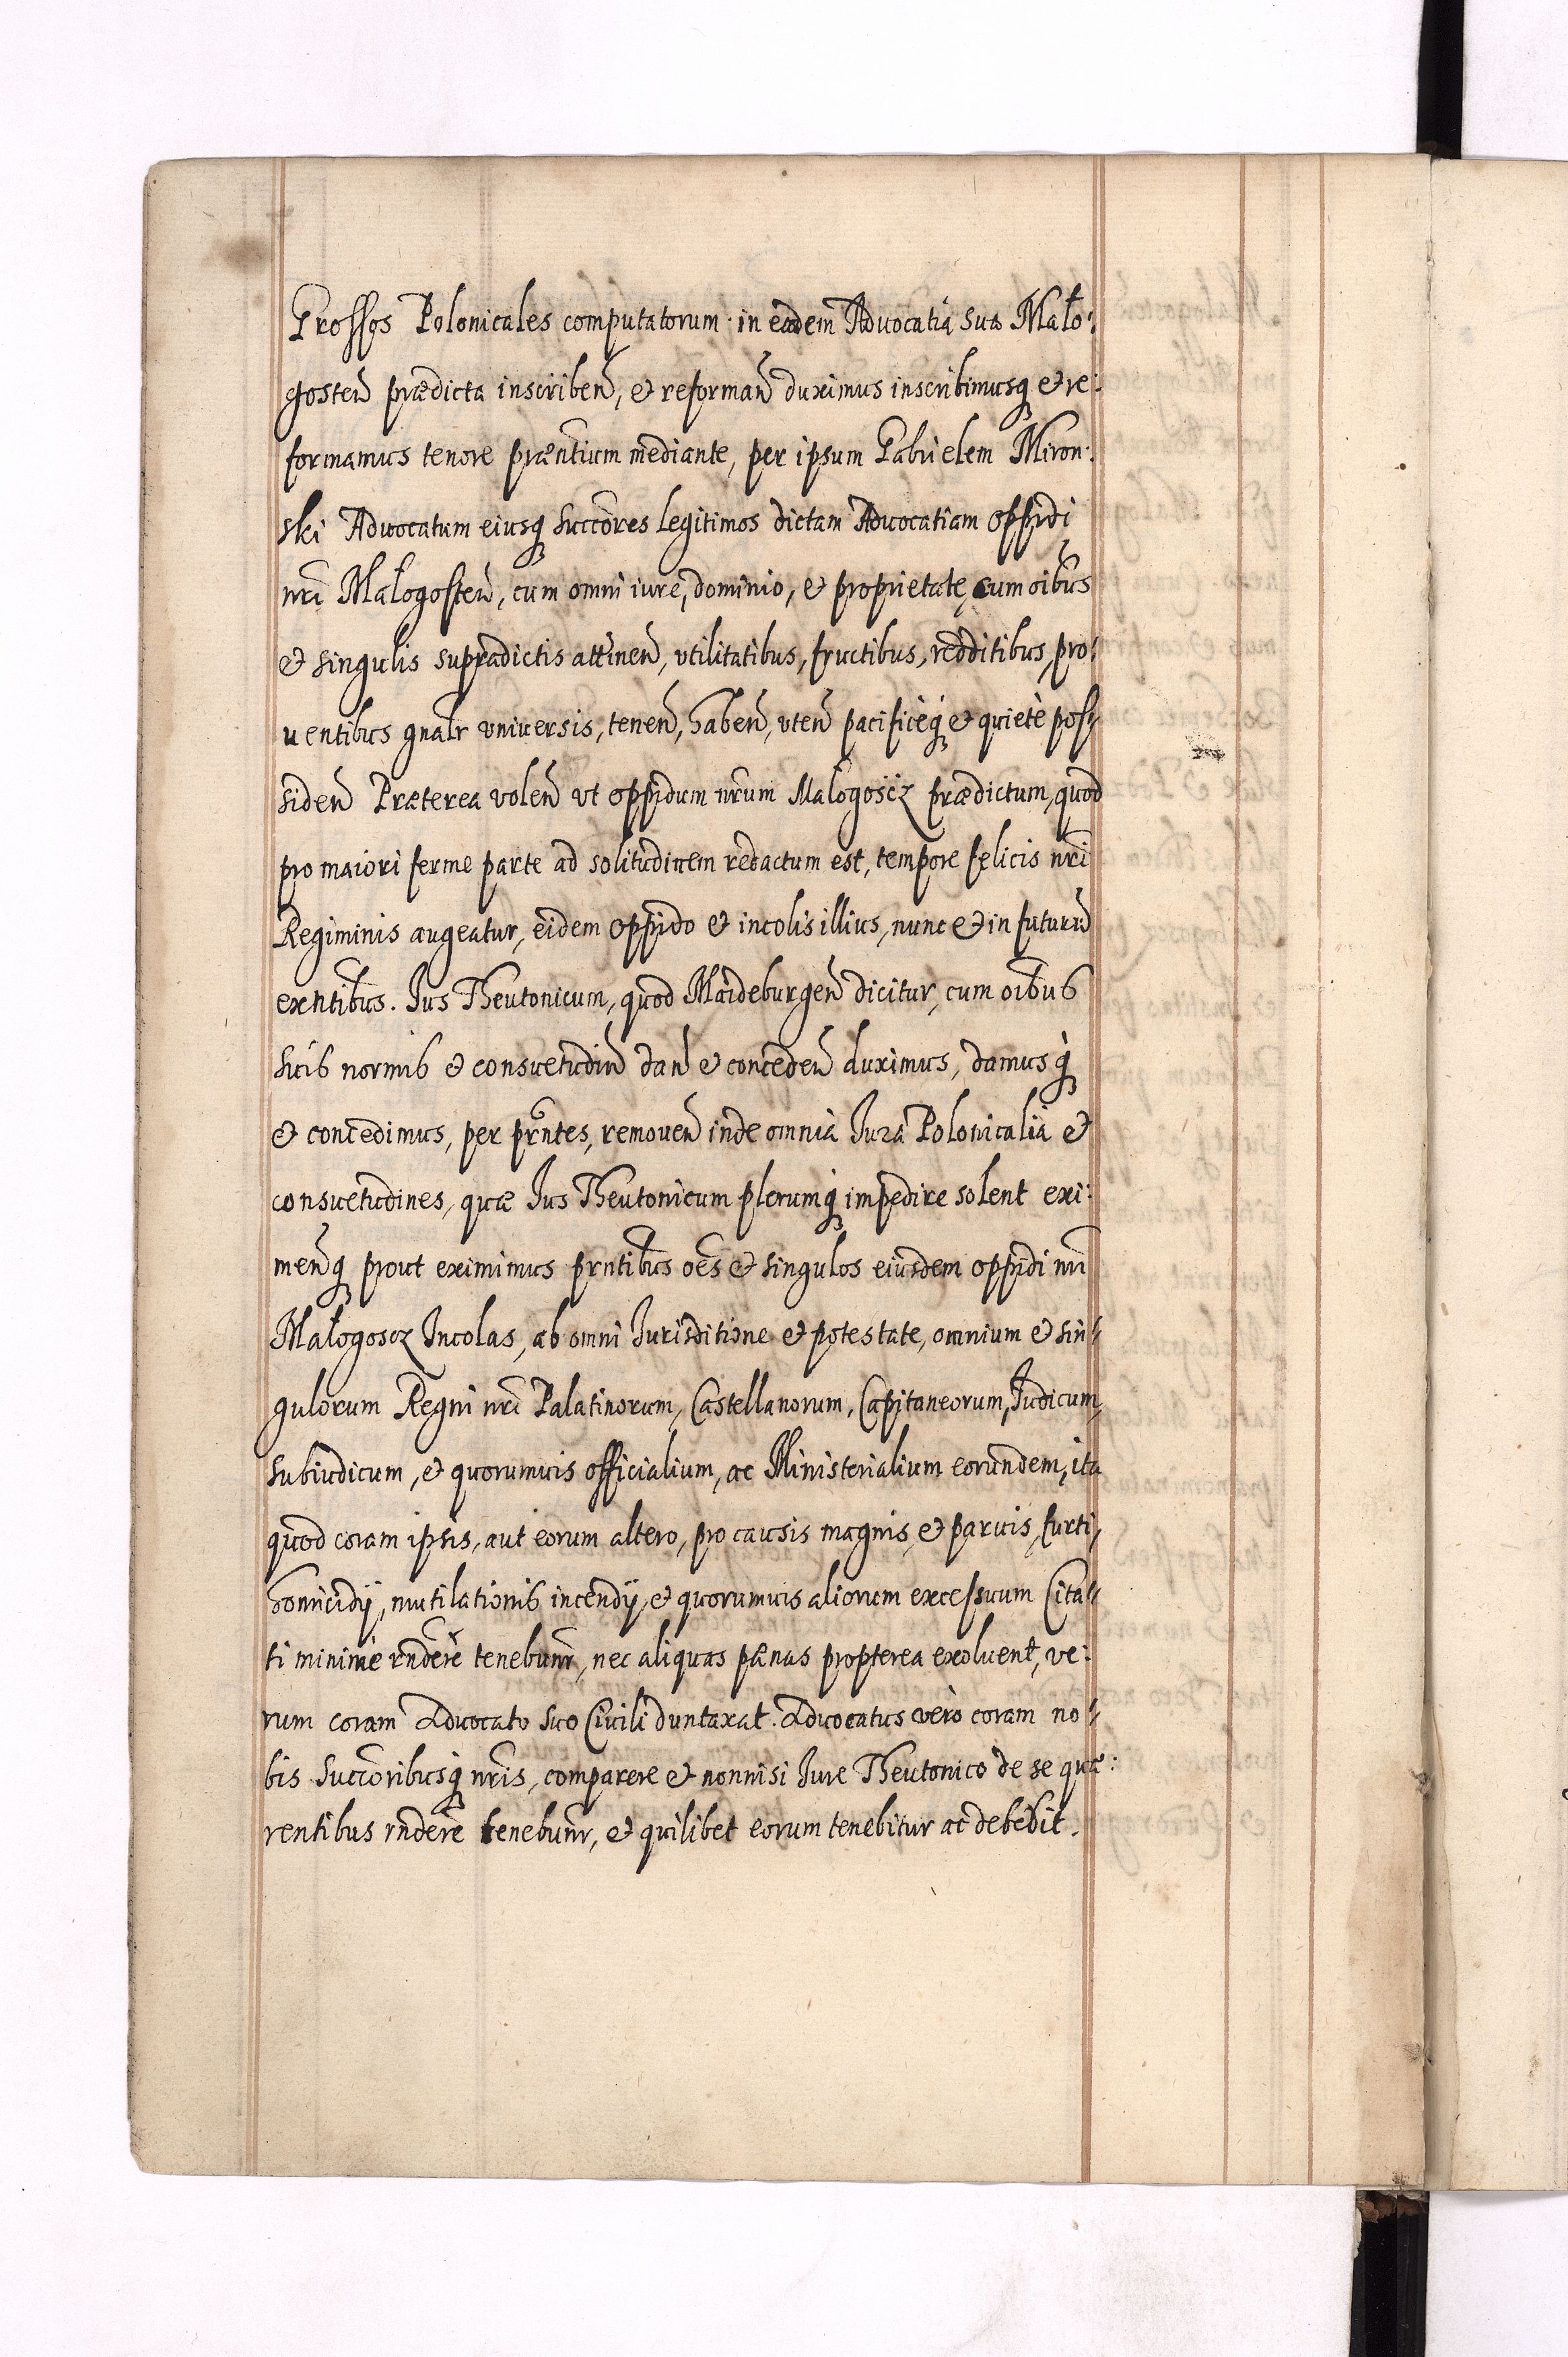 Grossos Polonicales computatorum in eadem Advocatia sua Mało:
gosteñ prædicta inscribeñ, et reformañ duximus inscribimusq et re:
formamus tenore præntium mediante, per ipsum Gabrielem Miron:
ski Advocatum eiusq succores legitimos dictam Advocatiam oppidi
nri Malogosteñ, cum omni iure, dominio, et proprietate, cum oibus
et singulis supradictis attineñ, vtilitatibus, fructibus, redditibus, pro/
uentibus gnalr vniuersis, teneñ, habeñ, vteñ pacificèq et quietè pos/
sideñ Præterea voleñ vt oppidum nrum Malogoscz prædictum, quod
pro maiori ferme parte ad solitudinem redactum est, tempore felicis nri
Regiminis augeatur, eidem oppido et incolis illius, nunc et in futurũ
exntibus. Ius Theutonicum, quod Maideburgeñ dicitur, cum oibus
suis normis et consuetudiñ dañ et concedeñ duximus, damusq
et concedimus, per prntes, remoueñ inde omnia Iura Polonicalia et
consuetudines, quæ Ius Theutonicum plerumq impedire solent exi:
meñq prout eximimus prntibus oes et singulos eiusdem oppidi nri
Małogoscz Incolas, ab omni Iurisditione et potestate, omnium et sin/
gulorum Regni nri Palatinorum, Castellanorum, Capitaneorum, Iudicum,
subiudicum, et quorumuis officialium, ac Ministerialium eorundem, ita
quod coram ipsis, aut eorum altero, pro causis magnis, et paruis, furti,
homicidij, mutilationis incendij, et quorumuis aliorum excessuum Cita/
ti minime rndere tenebunr, nec aliquas pænas propterea exoluent, ve:
rum coram Advocato suo Ciuili duntaxat. Advocatus verò coram no/
bis Succoribusq nris, comparere et nonnisi Iure Theutonico de se quæ:
rentibus rndere tenebunr, et quilibet eorum tenebitur ac debebit.